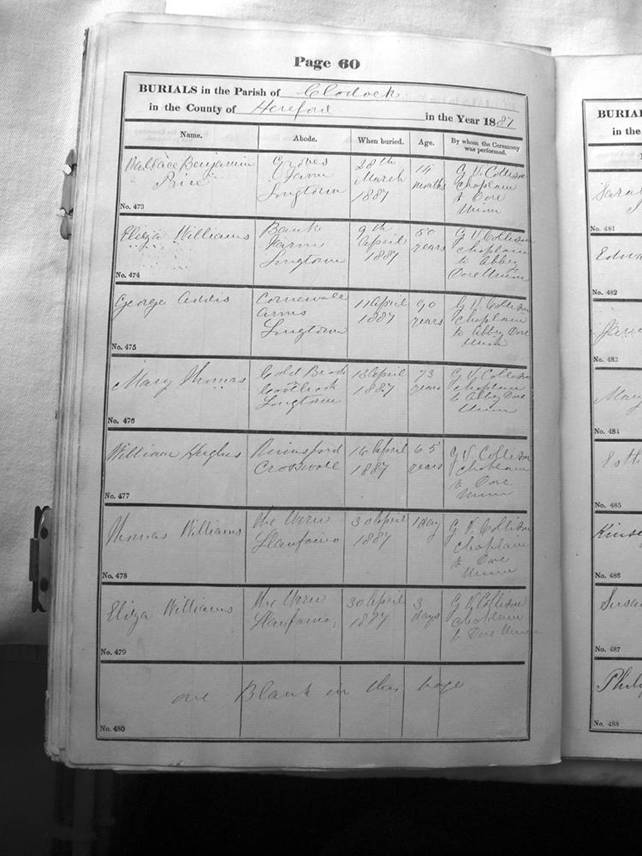 Page 60
BURIALS in the Parish of Clodock
in the County of Hereford in the Year 1887
Name. Abode. When buried. Age. By whom the Ceremony was performed.
Wallace Benjamin Price
Farm
Longtown
28th March 1887
14 months
G V Collison
Chaplain
to Dore
Union
No. 473
Eliza Williams
Bank
Farm
Longtown
9th April 1887
years
G V Collison
chaplain
to Abbey
Dore Union
No. 474
George Addis
Cornewall
Arms
Longtown
11 April 1887
90 years
G V Collison
chaplain
to Abbey Dore
Union
No. 475
Mary Thomas
Longtown
April 1887
73 years
G V Collison
chaplain
to Abbey Dore
Union
No. 476
William Hughes
14 April 1887
65 years
G V Collison
chaplain
to Dore
Union
No. 477
Thomas Williams
the
30 April 1887
1 day
G V Collison
chaplain
to Dore
Union
No. 478
Eliza Williams
the
30 April 1887
3 days
G V Collison
chaplain
to Dore Union
No. 479
one Blank in this page
No. 480
BURIA
in
No. 481
No. 482
No. 483
No. 484
No. 485
No. 486
Susa
No. 487
Phil
No. 488